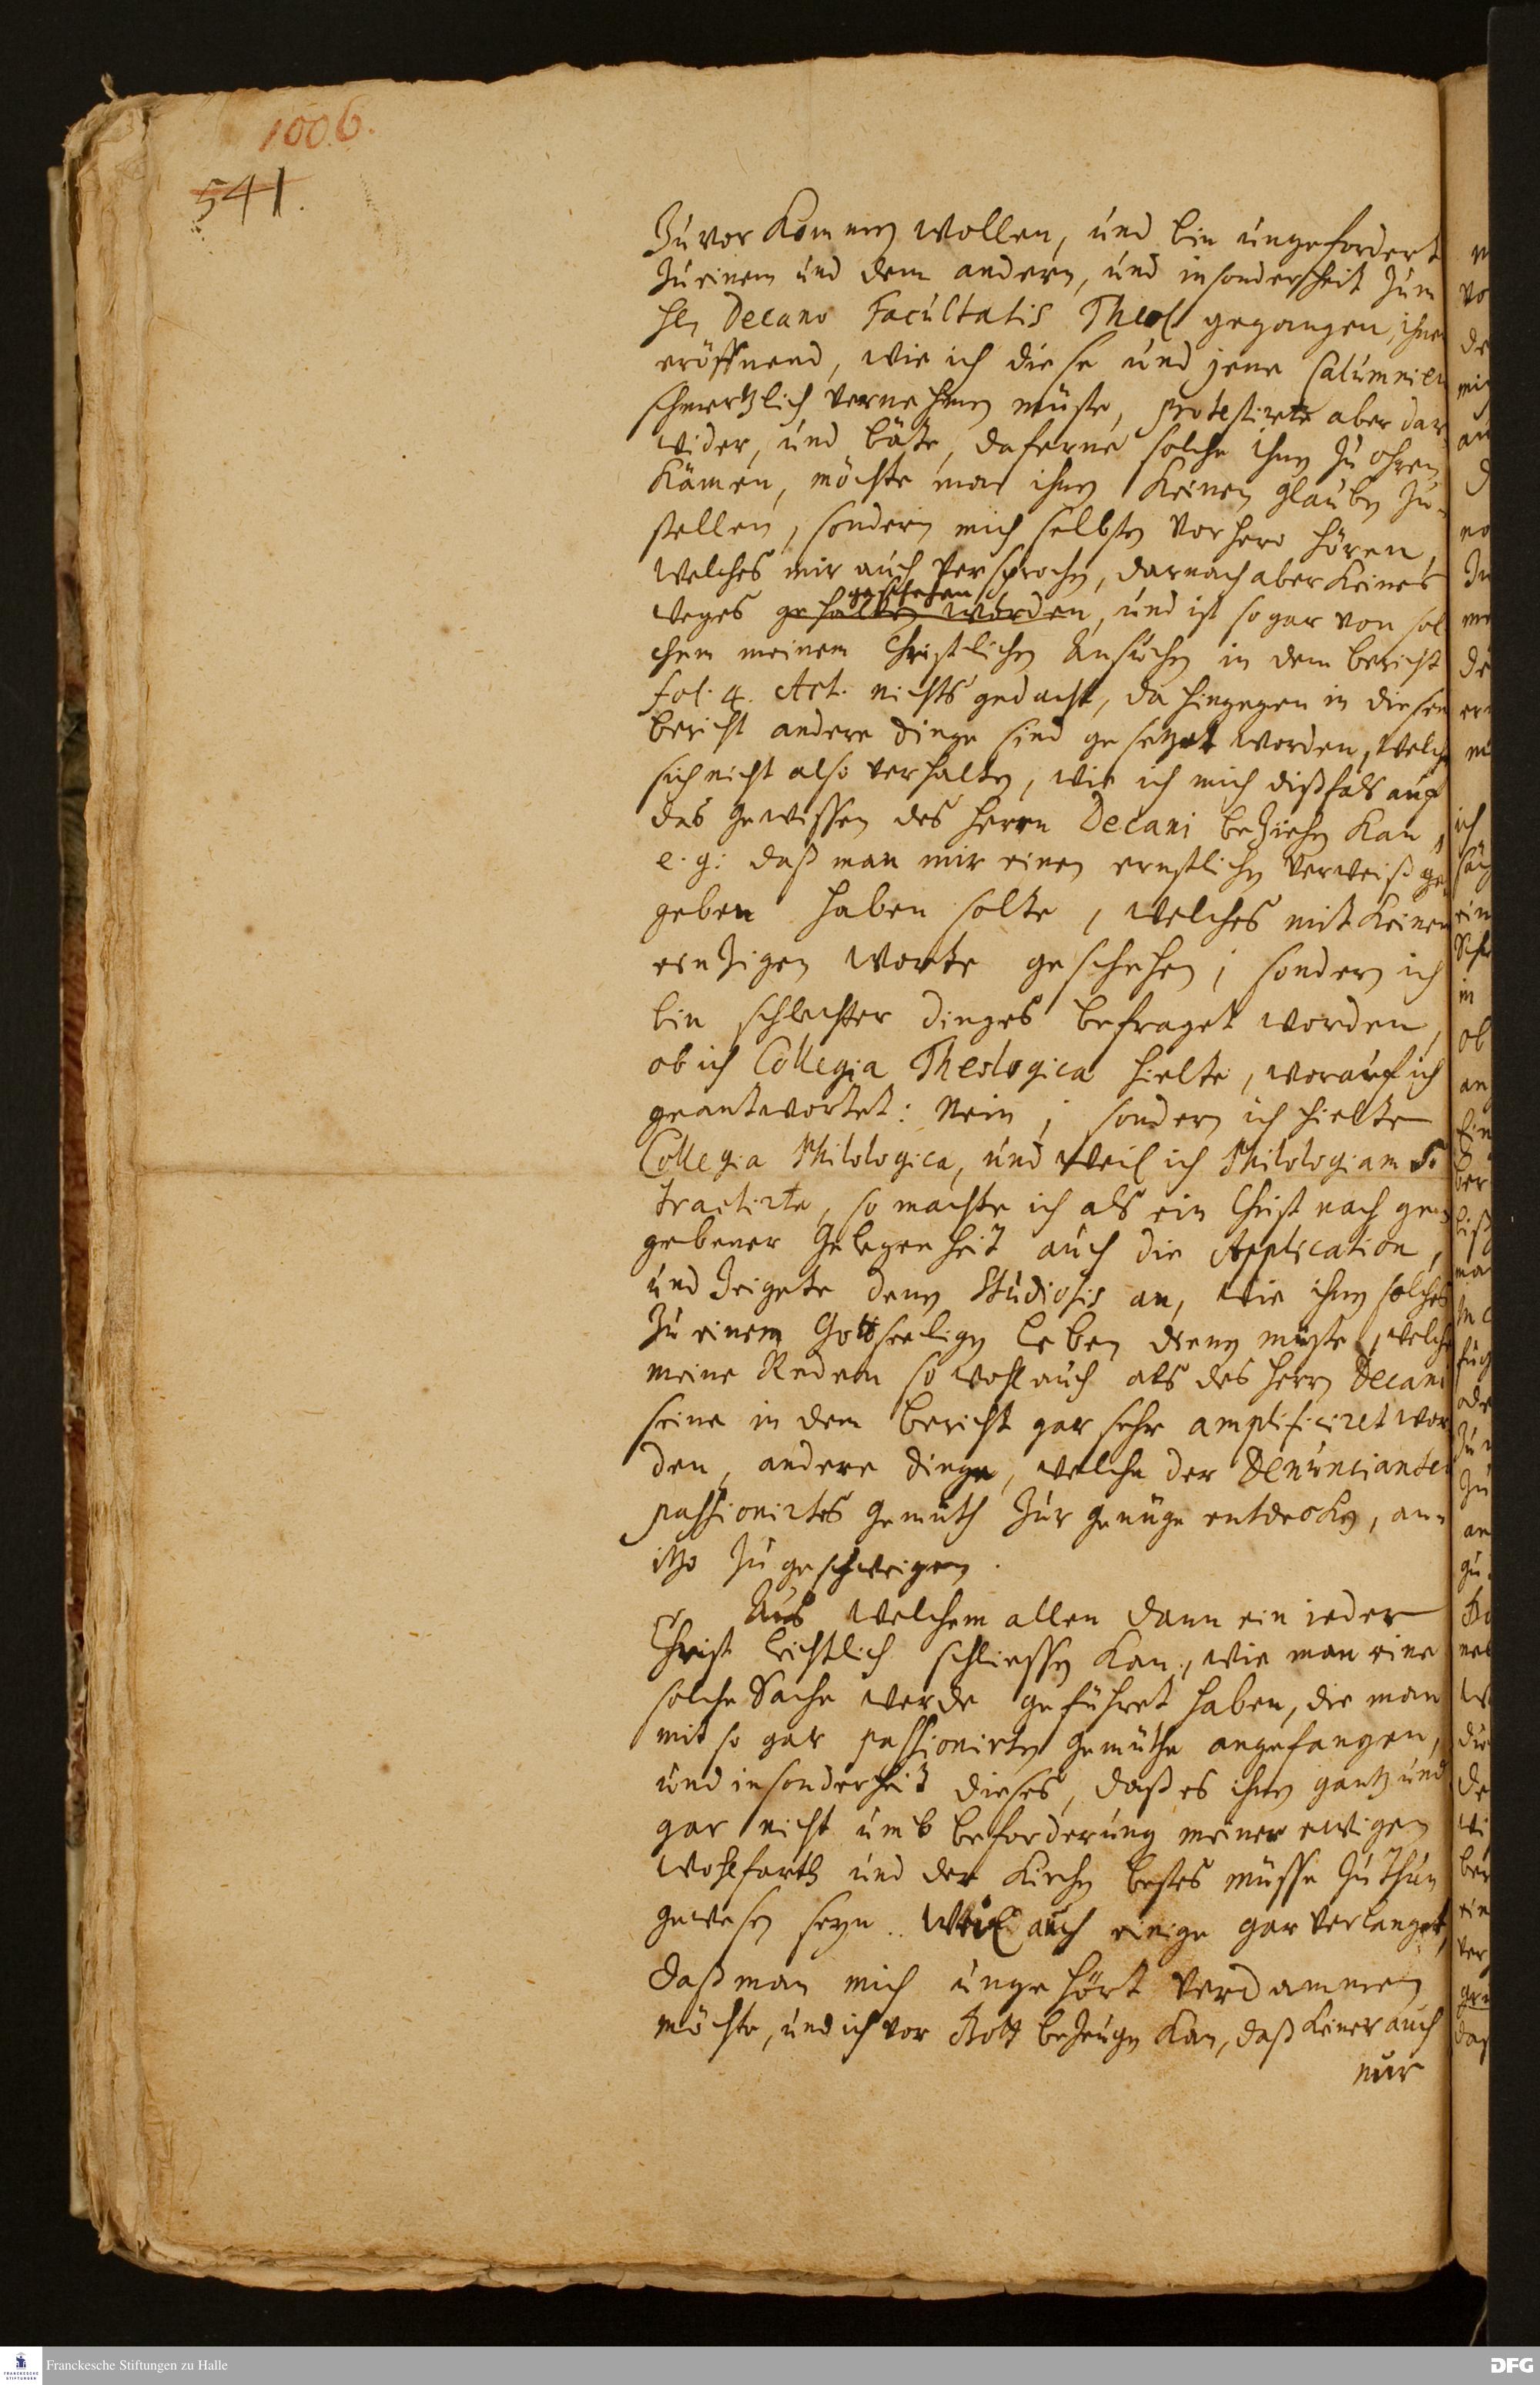 1006.
541.
zuvor kommen wollen, und bin ungefordert
zu einem und dem andern, und insonderheit zum
Hn. Decano Facultatis Theol. gegangen, ihnen
eröffnend, wie ich diese und jene Calumnien
schmertzlich vernehmen müste, protestirte aber dar-
wider, und bäte, daferne solche ihnen zu ohren
kämen, möchte man ihnen keinen glauben zu-
stellen, sondern mich selbsten vorhero hören,
welches mir auch versprochen, darnach aber keines
geschehen
weges gehalten worden, und ist so gar von sol-
chem meinem Christlichen Ansuchen in dem bericht
fol. 4. Act. nichts gedacht, da hingegen in diesem
bericht andere dinge sind gesetzet worden, welche
sich nicht also verhalten, wie ich mich dißfals auf
das gewissen des Herrn Decani beziehen kan,
e. g. daß man mir einen ernstlichen verweiß ge-
geben haben solte, welches mit keinem
eintzigen worte geschehen; sondern ich
bin schlechter dinges befraget worden,
ob ich Collegia Theologica hielte, worauf ich
geantwortet: Nein; sondern ich hielte
Collegia Philologica, und weil ich Philologiam S.
tractirte, so machte ich als ein Christ nach ge-
gebener Gelegenheit auch die Application,
und zeigete denen Studiosis an, wie ihnen solches
zu einem Gottseeligen Leben dienen müste, welche
meine Reden so wohl auch als des Herrn Decani
seine in dem Bericht gar sehr amplificiret wor-
den, andere dinge, welche der Denuncianten
passionirtes Gemüth zur genüge entdecken, an-
itzo zu geschweigen.
Aus welchem allen dann ein ieder
Christ leichtlich schliessen kan, wie man eine
solche Sache werde geführet haben, die man
mit so gar passionirten gemüthe angefangen,
und insonderheit dieses, daß es ihnen gantz und
gar nicht umb beforderung meiner ewigen
wohlfarth und der Kirchen bestes müsse zu thun
gewesen seyn. Weil auch einige gar verlanget,
daß man mich ungehört verdammen
möchte, und ich vor Gott bezeugen kan, daß keiner auch
nur
Franckesche Stiftungen zu Halle
FRANCKESCHE STIFTUNGEN
DFG